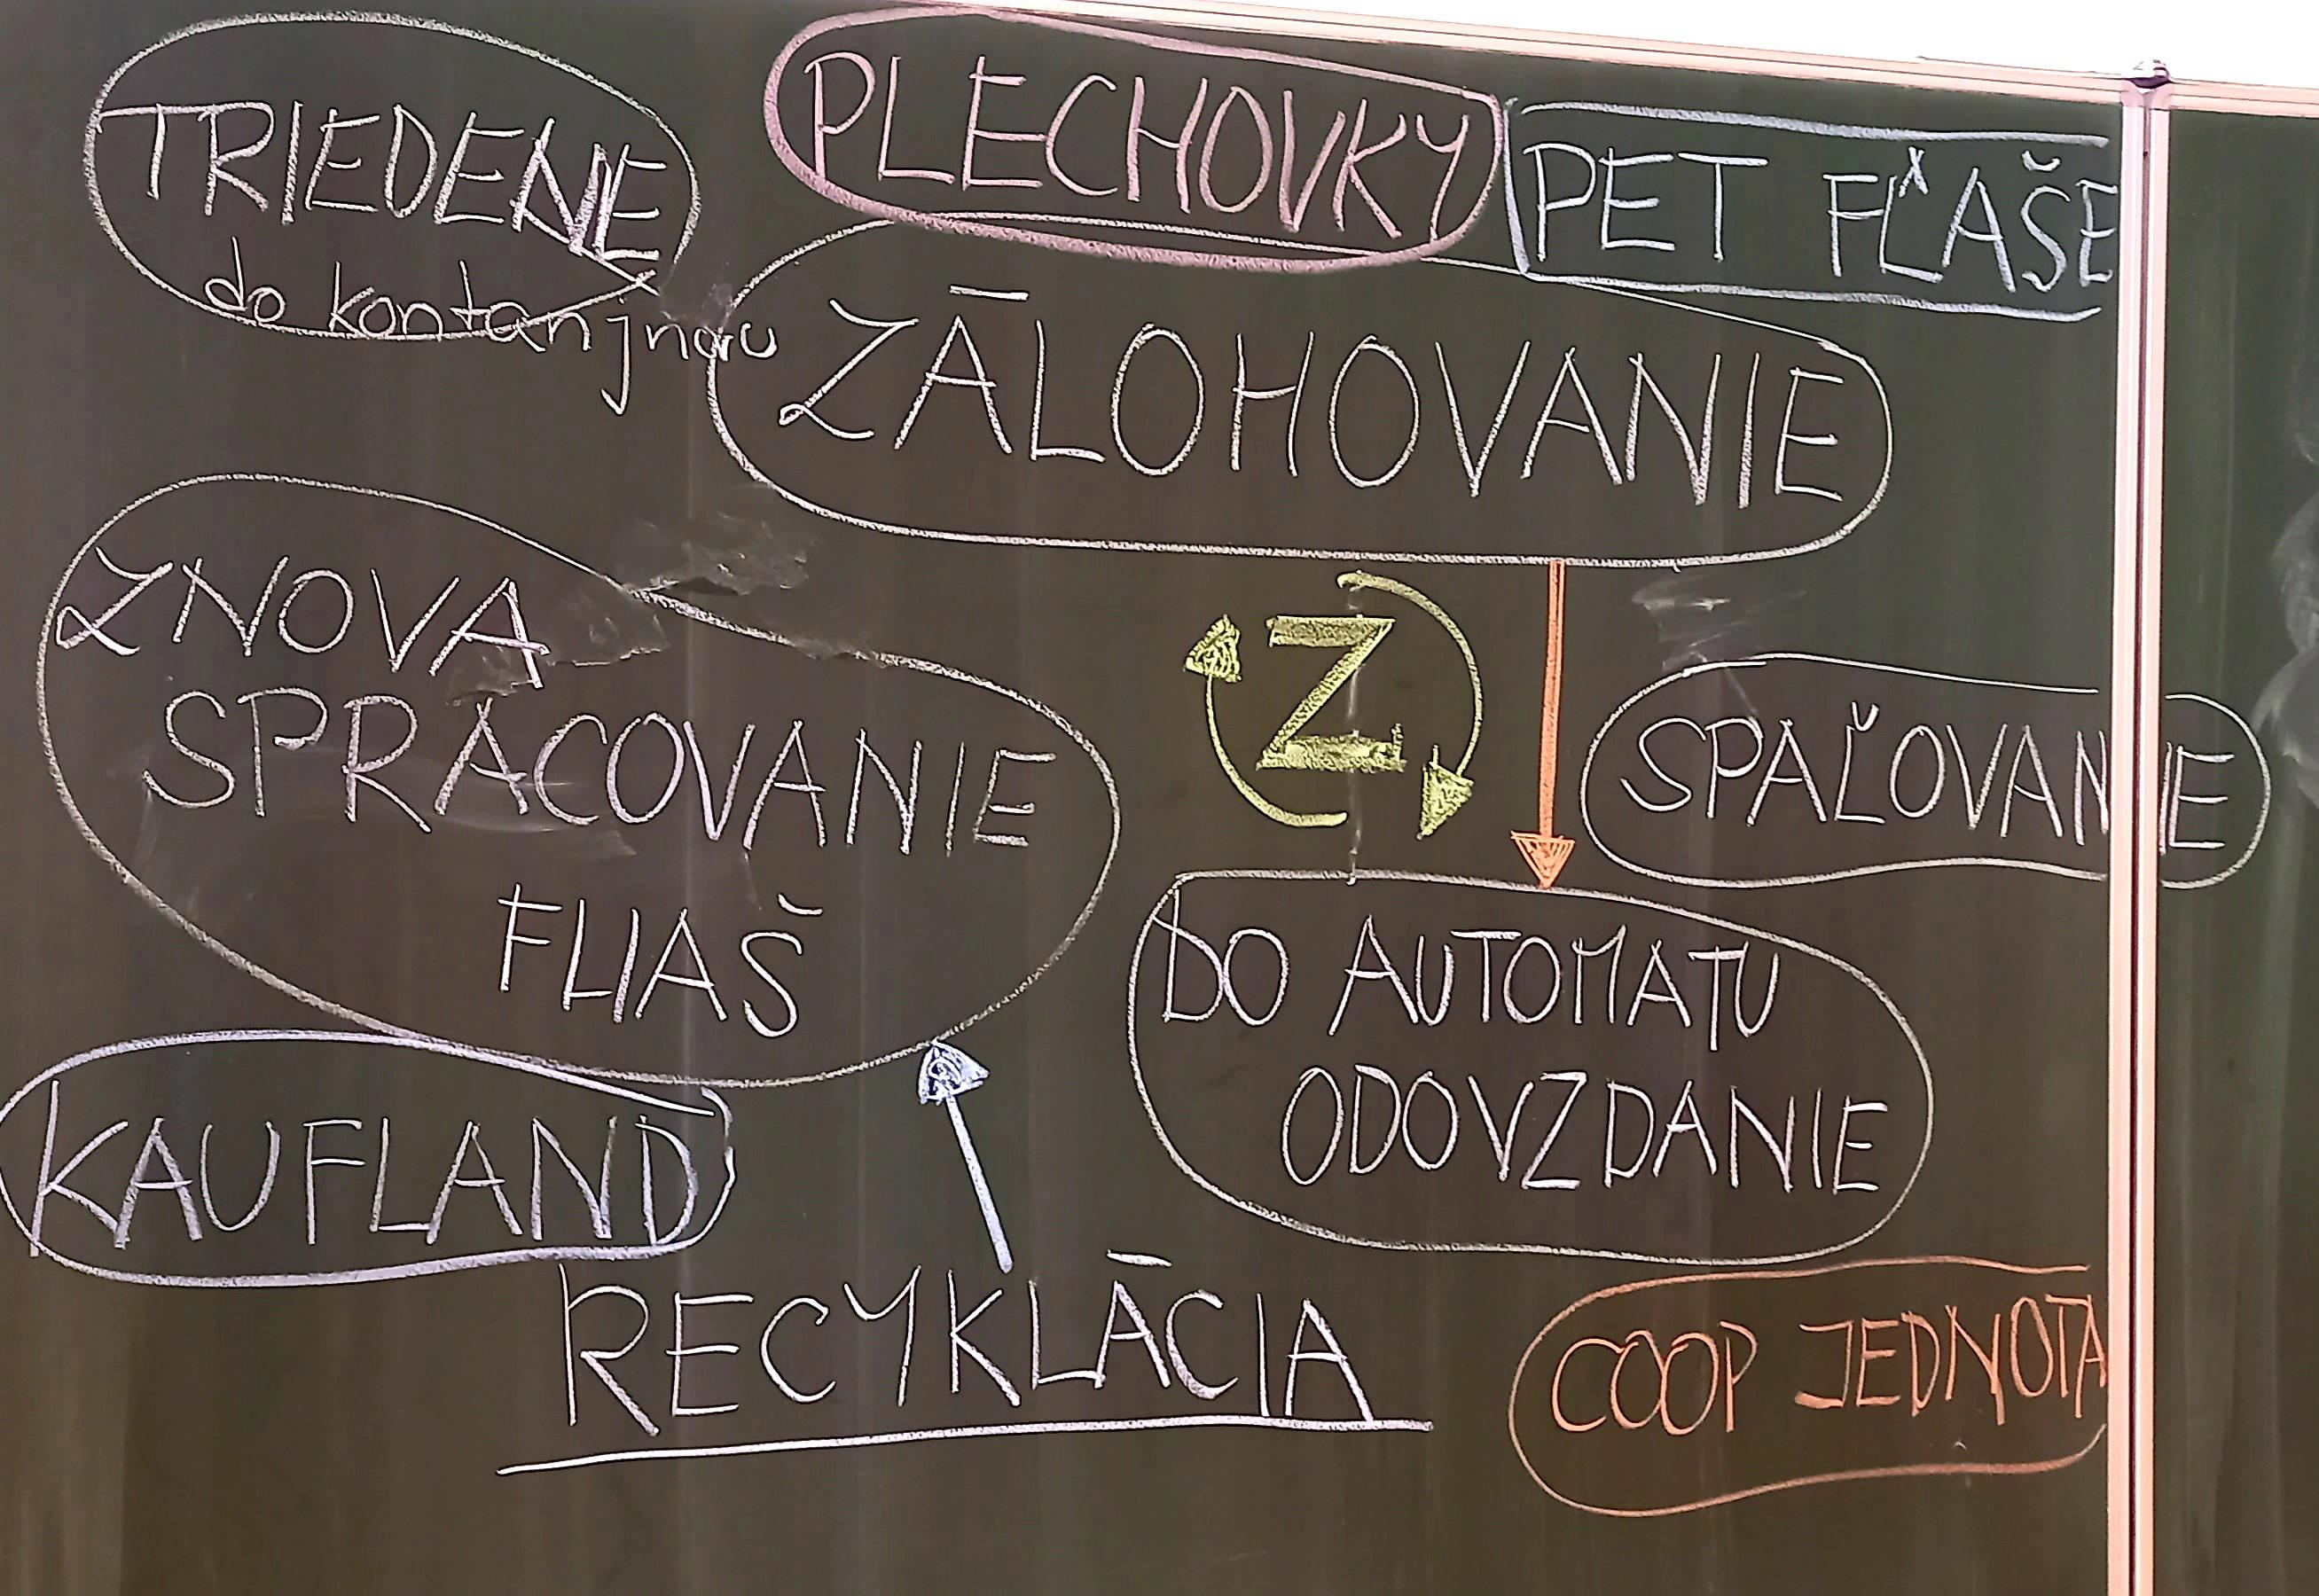 TRIEDENE
do kontanjnru
PLECHOVKY
PET FĽAŠE
ZĀLOHOVANIE
ZNOVA
SPRACOVANIE
FLIAŠ
Z
SPAĽOVANIE
DO AUTOMATU
ODOVZDANIE
KAUFLAND
RECYKLĀCIA
COOP JEDNOTA